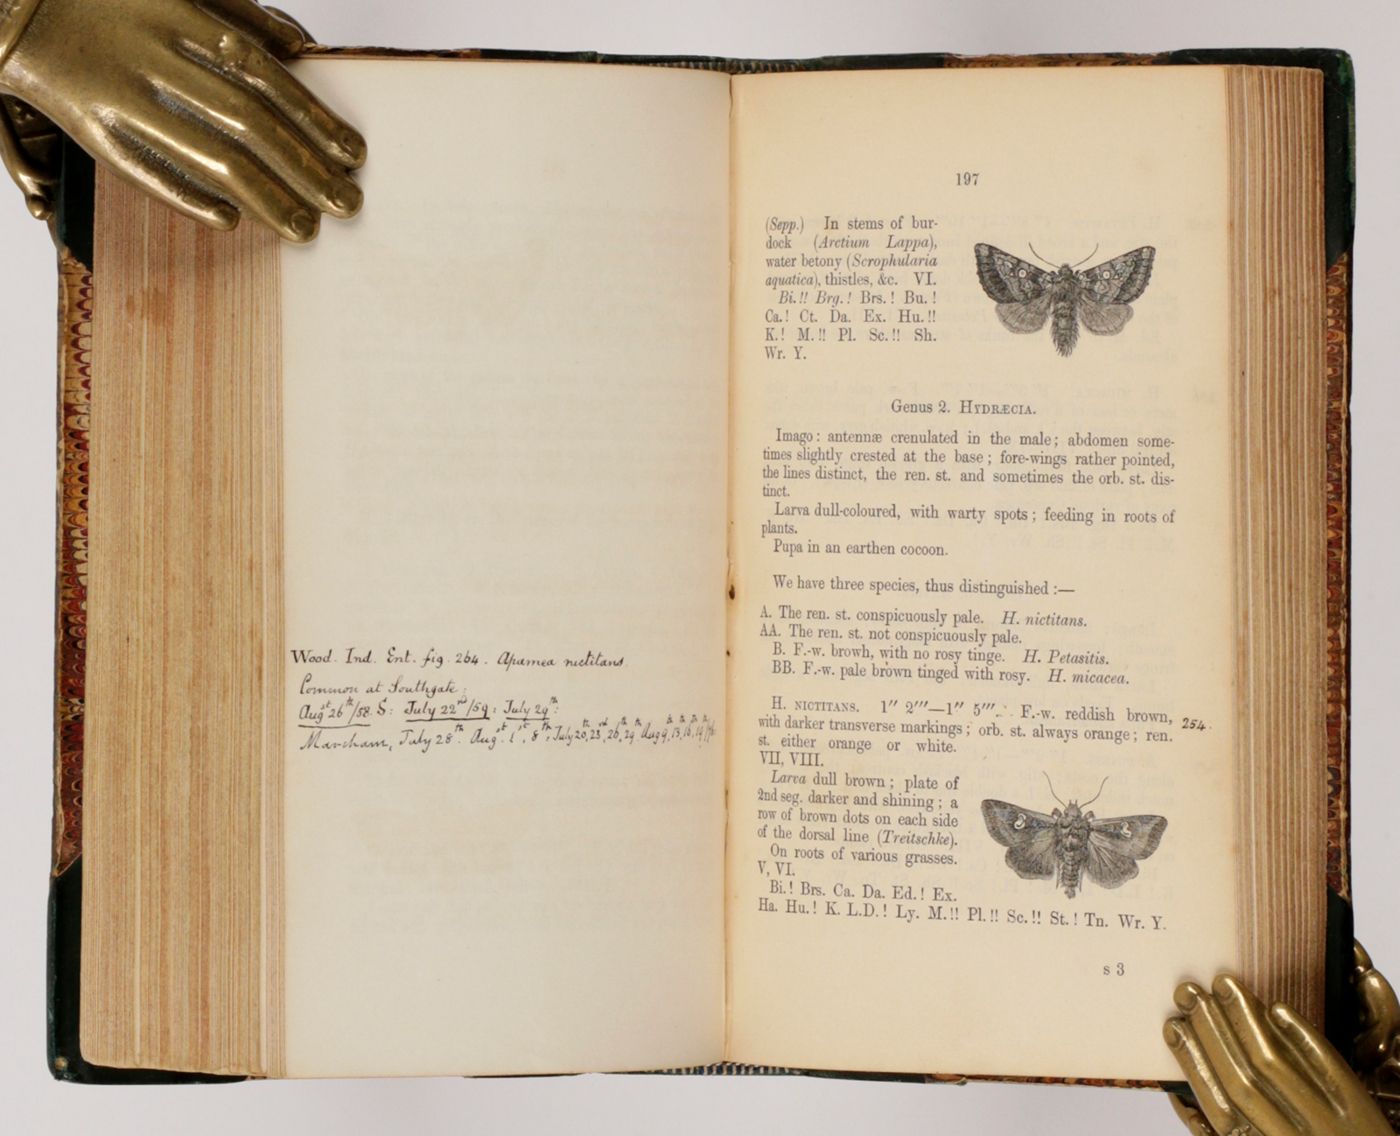 Wood. Ind. Ent. fig. 264. Apamea nictitans.
Common at Southgate:
Augst 26th/58. S: July 22nd/59: July 29th:
Marcham, July 28th. Augst 1st, 8th, July 20th, 23rd, 26th, 29th Aug 9,
197
(Sepp.) In stems of bur-
dock (Arctium Lappa),
water betony (Scrophularia
aquatica), thistles, &c. VI.
Bi.!! Brg.! Brs.! Bu.!
Ca.! Ct. Da. Ex. Hu.!!
K.! M.!! Pl. Sc.!! Sh.
Wr. Y.
Genus 2. HYDRÆCIA.
Imago: antennæ crenulated in the male; abdomen some-
times slightly crested at the base; fore-wings rather pointed,
the lines distinct, the ren. st. and sometimes the orb. st. dis-
tinct.
Larva dull-coloured, with warty spots; feeding in roots of
plants.
Pupa in an earthen cocoon.
We have three species, thus distinguished:—
A. The ren. st. conspicuously pale. H. nictitans.
AA. The ren. st. not conspicuously pale.
B. F.-w. browh, with no rosy tinge. H. Petasitis.
BB. F.-w. pale brown tinged with rosy. H. micacea.
H. NICTITANS. 1″ 2‴—1″ 5‴. F.-w. reddish brown,
with darker transverse markings; orb. st. always orange; ren. 254.
st. either orange or white.
VII, VIII.
Larva dull brown; plate of
2nd seg. darker and shining; a
row of brown dots on each side
of the dorsal line (Treitschke).
On roots of various grasses.
V, VI.
Bi.! Brs. Ca. Da. Ed.! Ex.
Ha. Hu.! K. L.D.! Ly. M.!! Pl.!! Sc.!! St.! Tn. Wr. Y.
s 3